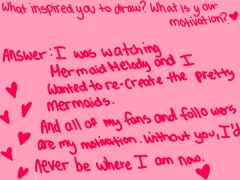 What inspired you to draw? What is your
motivation?
Answer: I was watching
Mermaid Melody and I
Wanted to re-create the pretty
mermaids.
And all of my fans and followers
are my motivation. Without you, I'd
never be where I am now.